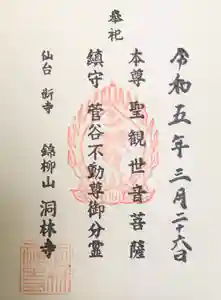 令和五年三月二十六日
奉祀
本尊 聖観世音菩薩
鎮守 菅谷不動尊御分霊
仙台 新寺 錦柳山 洞林寺